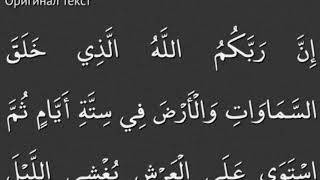 Оригинал текст
إِنَّ رَبَّكُمُ اللَّهُ الَّذِي خَلَقَ
السَّمَاوَاتِ وَالْأَرْضَ فِي سِتَّةِ أَيَّامٍ ثُمَّ
اسْتَوَى عَلَى الْعَرْشِ يُغْشِي اللَّيْلَ